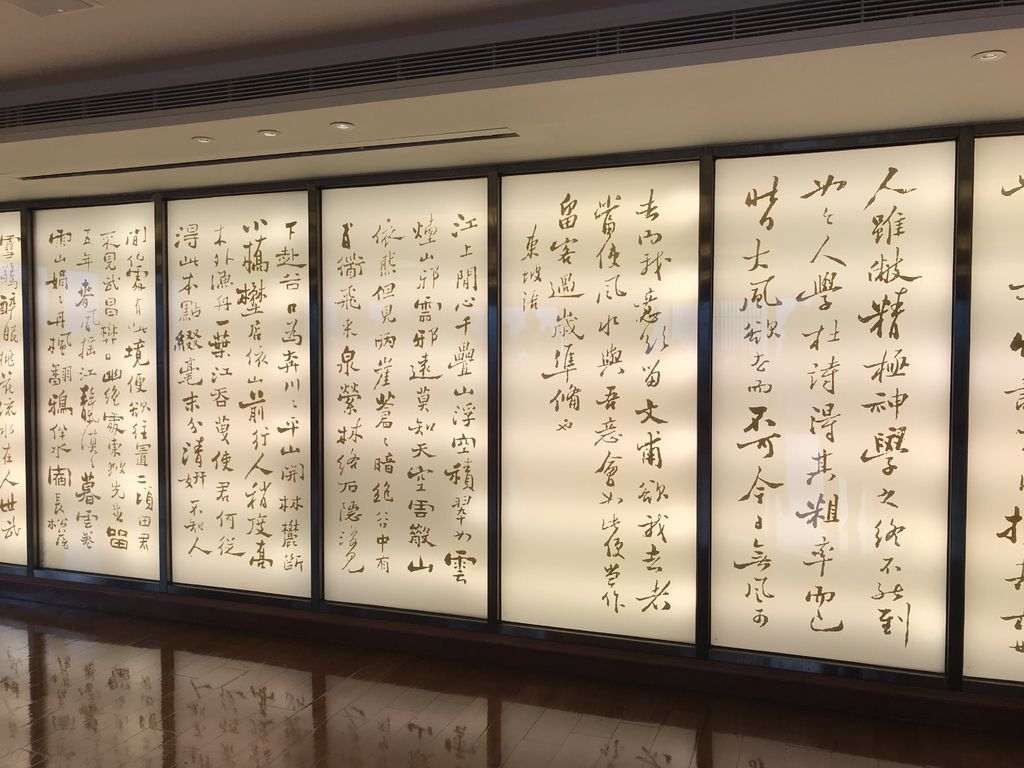 人雖敝精極神學之終不能到
人學杜詩得其粗率而已
皆大風欲去而不可今日無風可
去而我意欲留文甫欲我去者
當使風水與吾意會如此便當作
留客過歲準備也
東坡
江上愁心千疊山浮空積翠如雲
煙山耶雲耶遠莫知空雲散山
依然但見兩崖蒼〻暗絕谷中有
百道飛來泉縈林絡石隱復見
下赴谷口為奔川〻平山開林麓斷
小橋野店依山前行人稍度喬
木外漁舟一葉江吞使君何從
得此本點綴毫末分清妍不知人
間何處有此境徑欲往置二頃田君
不見武昌樊口幽絕處東坡先生留
五年春風搖江天漠〻暮雲卷
雨山娟〻丹楓翻鴉伴水宿長松落
雪驚醉眠桃花流水在人世武